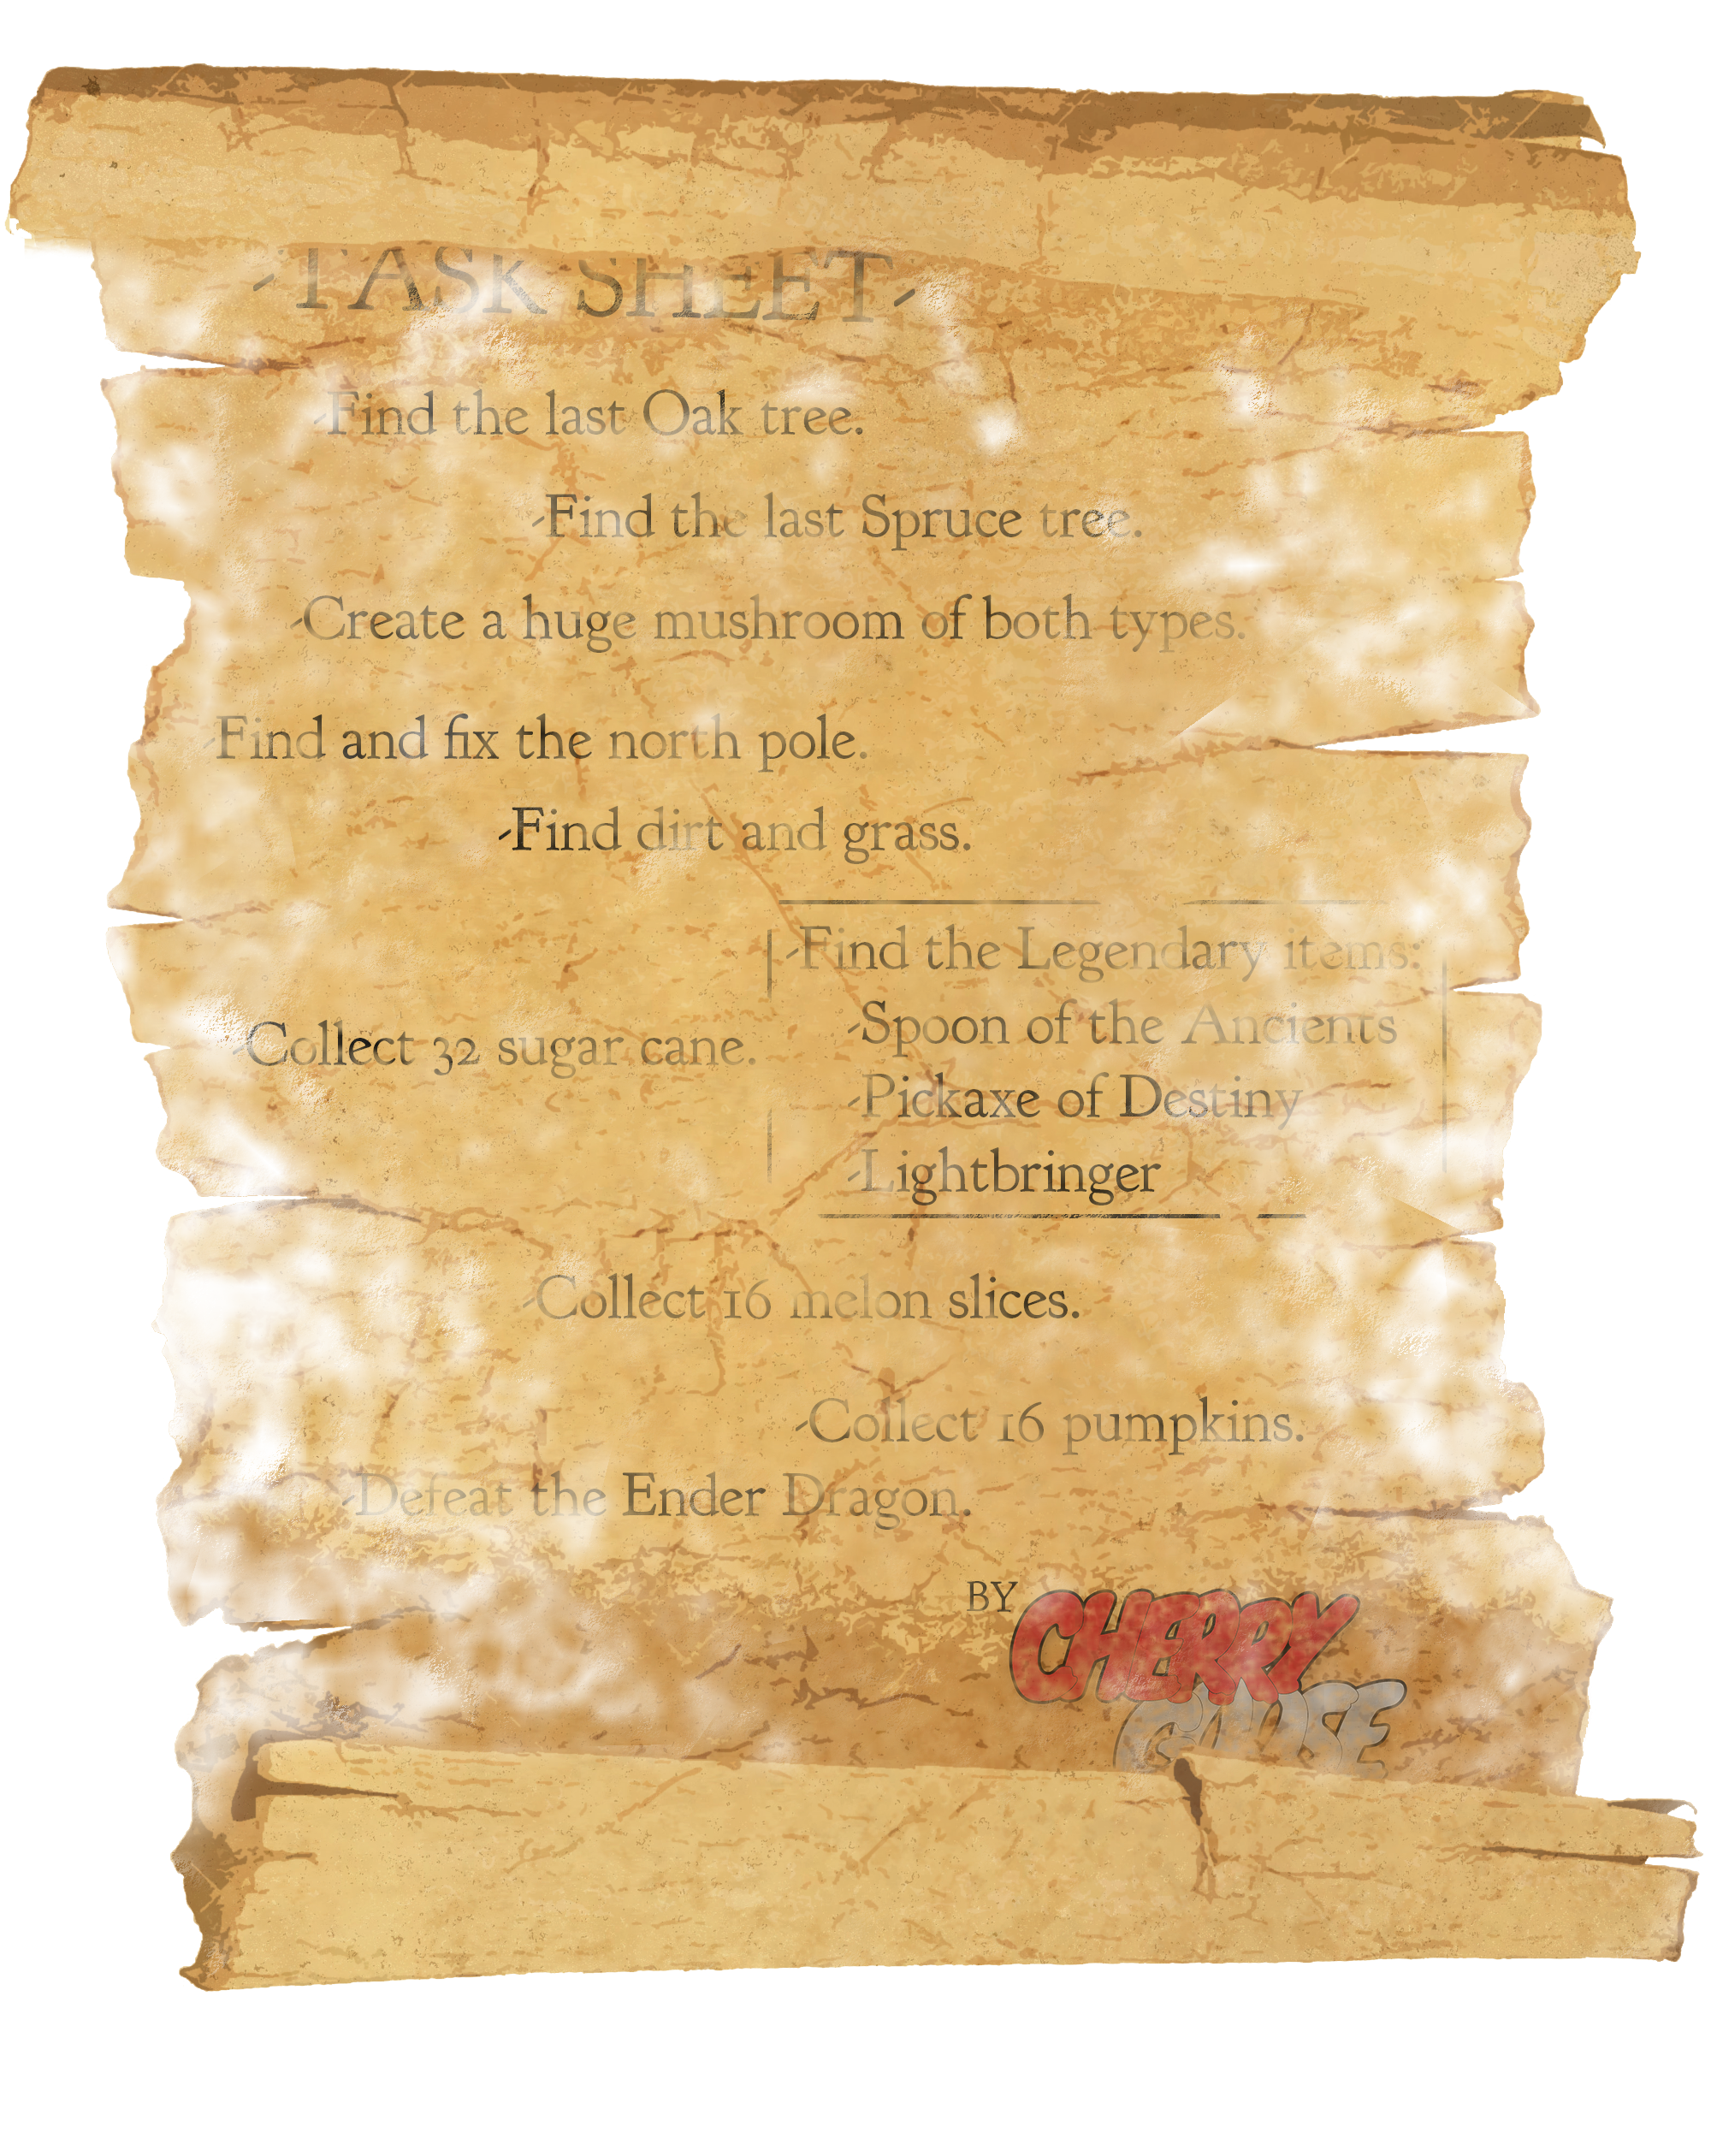 -TASK SHEET-
-Find the last Oak tree.
-Find the last Spruce tree.
-Create a huge mushroom of both types.
-Find and fix the north pole.
-Find dirt and grass.
-Find the Legendary items:
-Spoon of the Ancients
-Collect 32 sugar cane.
-Pickaxe of Destiny
-Lightbringer
-Collect 16 melon slices.
-Collect 16 pumpkins.
-Defeat the Ender Dragon.
BY CHERRY
GOOSE